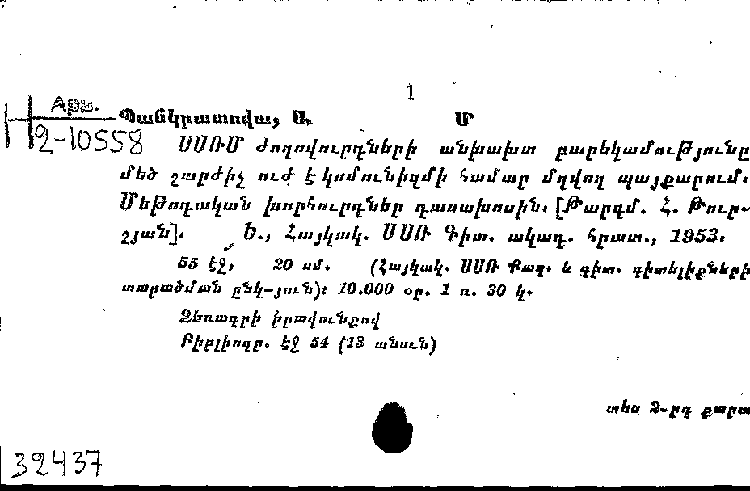 1
Արխ.
Պանկրատովա, Ա. Մ
2-10558
ՍՍՌՄ ժողովուրդների անխախտ բարեկամությունը
մեծ շարժիչ ուժ է կոմունիզմի համար մղվող պայքարում։
Մեթոդական խորհուրդներ դասախոսին։ [Թարգմ. Հ. Թուր-
շյան]։ Ե., Հայկակ. ՍՍՌ Գիտ. ակադ. հրատ., 1953։
55 էջ, 20 սմ. (Հայկակ. ՍՍՌ Քաղ. և գիտ. գիտելիքների
տարածման ընկ-յուն)։ 10.000 օր. 1 ռ. 30 կ.
Ձեռագրի իրավունքով
Բիբլիոգր. էջ 54 (13 անուն)
տես 2-րդ քարտ
32437